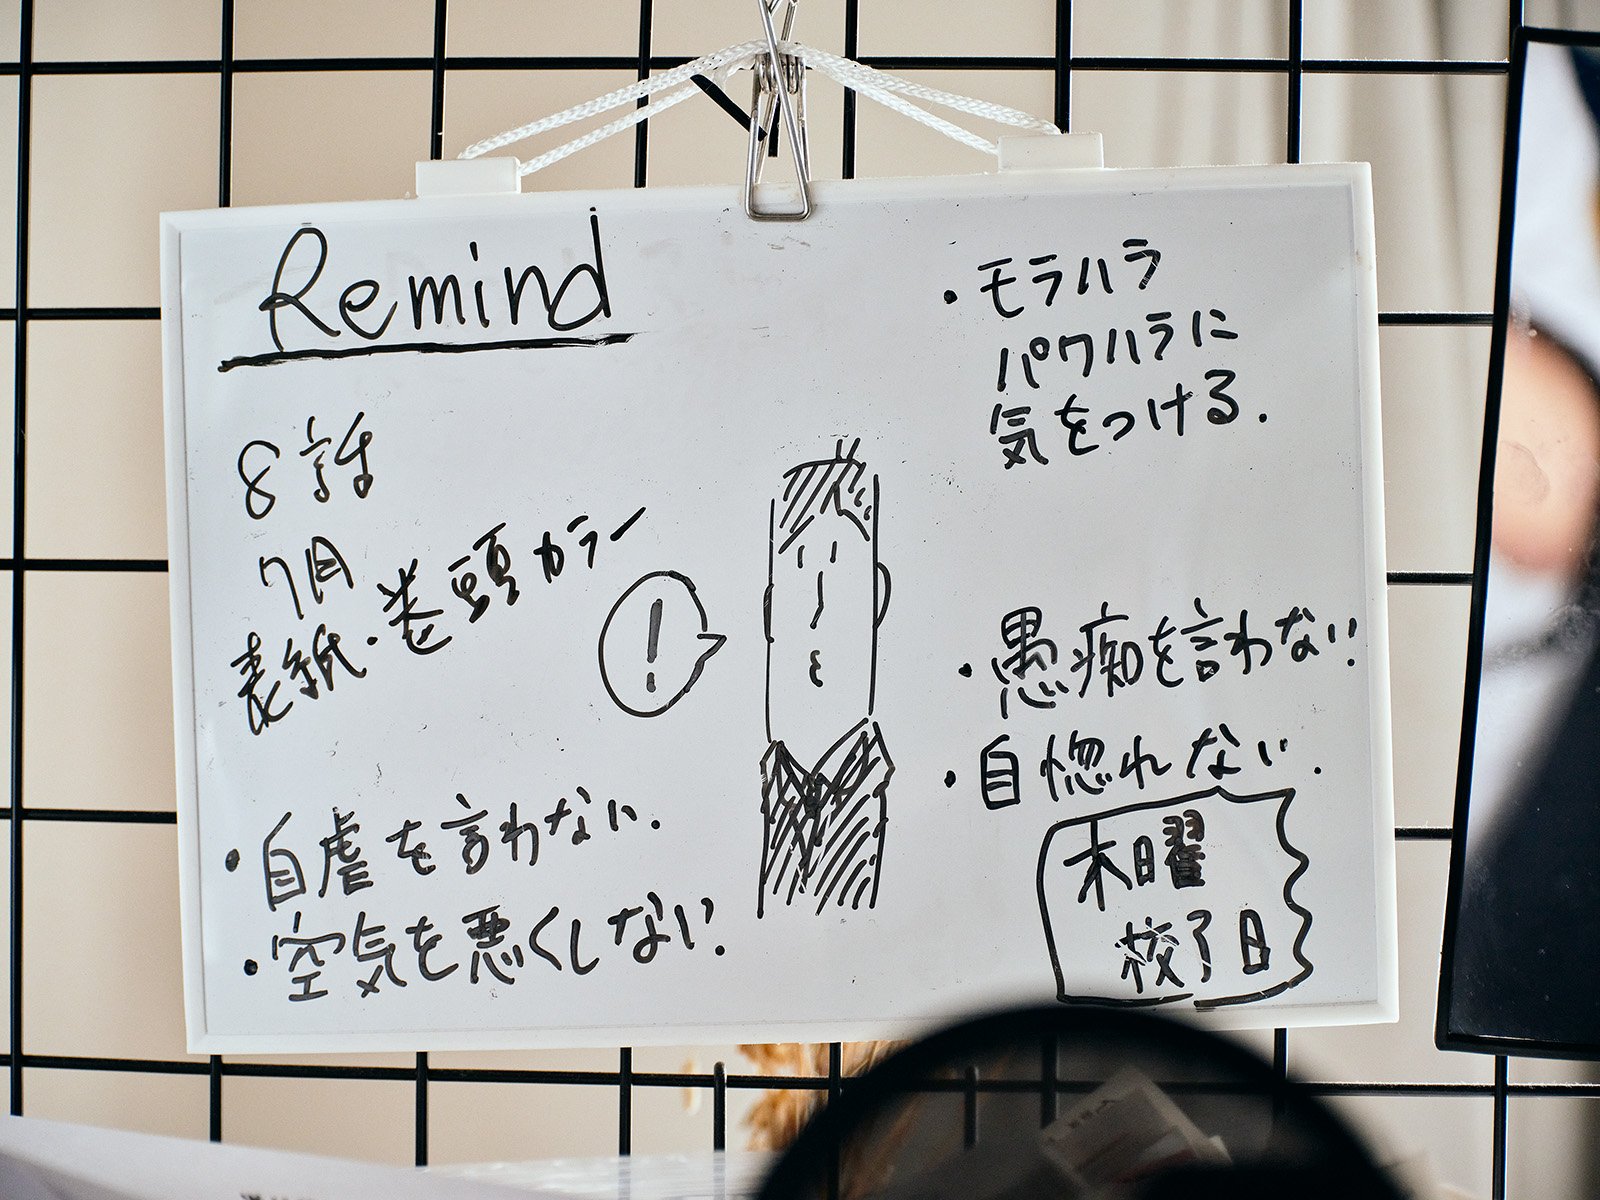 Remind
8話
7月
表紙・巻頭カラー
!
・自虐を言わない.
・空気を悪くしない.
・モラハラ
パワハラに
気をつける.
・愚痴を言わない!
・自惚れない.
木曜
校了日